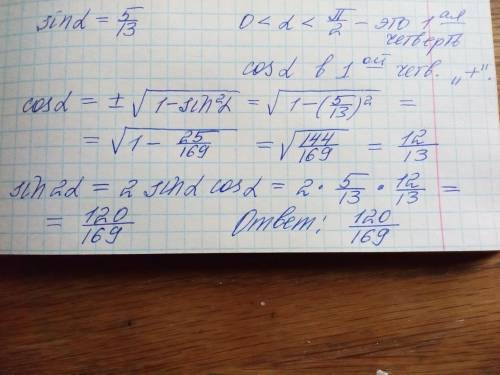 sinα = 5/13   0 < α < π/2 – это 1 ая
четверть
cosα в 1 ой четв. „+".
cosα = ± √(1-sin²α) = √(1-(5/13)²) =
= √(1 - 25/169) = √(144/169) = 12/13
sin2α = 2 sinα cosα = 2 · 5/13 · 12/13 =
= 120/169   Ответ: 120/169